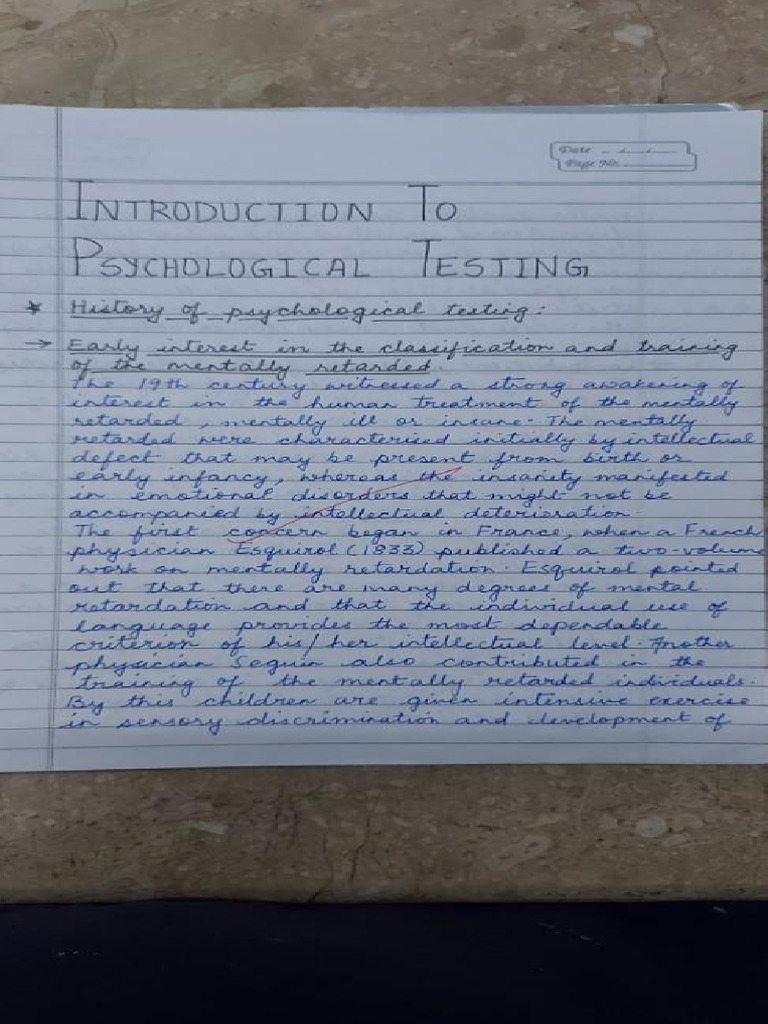 Date
Page No.
INTRODUCTION TO
PSYCHOLOGICAL TESTING
* History of psychological testing:
→ Early interest in the classification and training
of the mentally retarded
The 19th century witnessed a strong awakening of
interest in the human treatment of the mentally
retarded, mentally ill or incane. The mentally
retarded were characterised initially by intellectual
defect that may be present from birth or
early infancy, whereas the insanity manifested
in emotional disorders that might not be
accompanied by intellectual deterioration.
The first concern began in France, when a French
physician Esquirol (1833) published a two-volume
work on mentally retardation. Esquirol pointed
out that there are many degrees of mental
retardation and that the individual use of
language provides the most dependable
criterion of his/her intellectual level. Another
physician Seguin also contributed in the
training of the mentally retarded individuals.
By this children are given intensive exercise
in sensory discrimination and development of